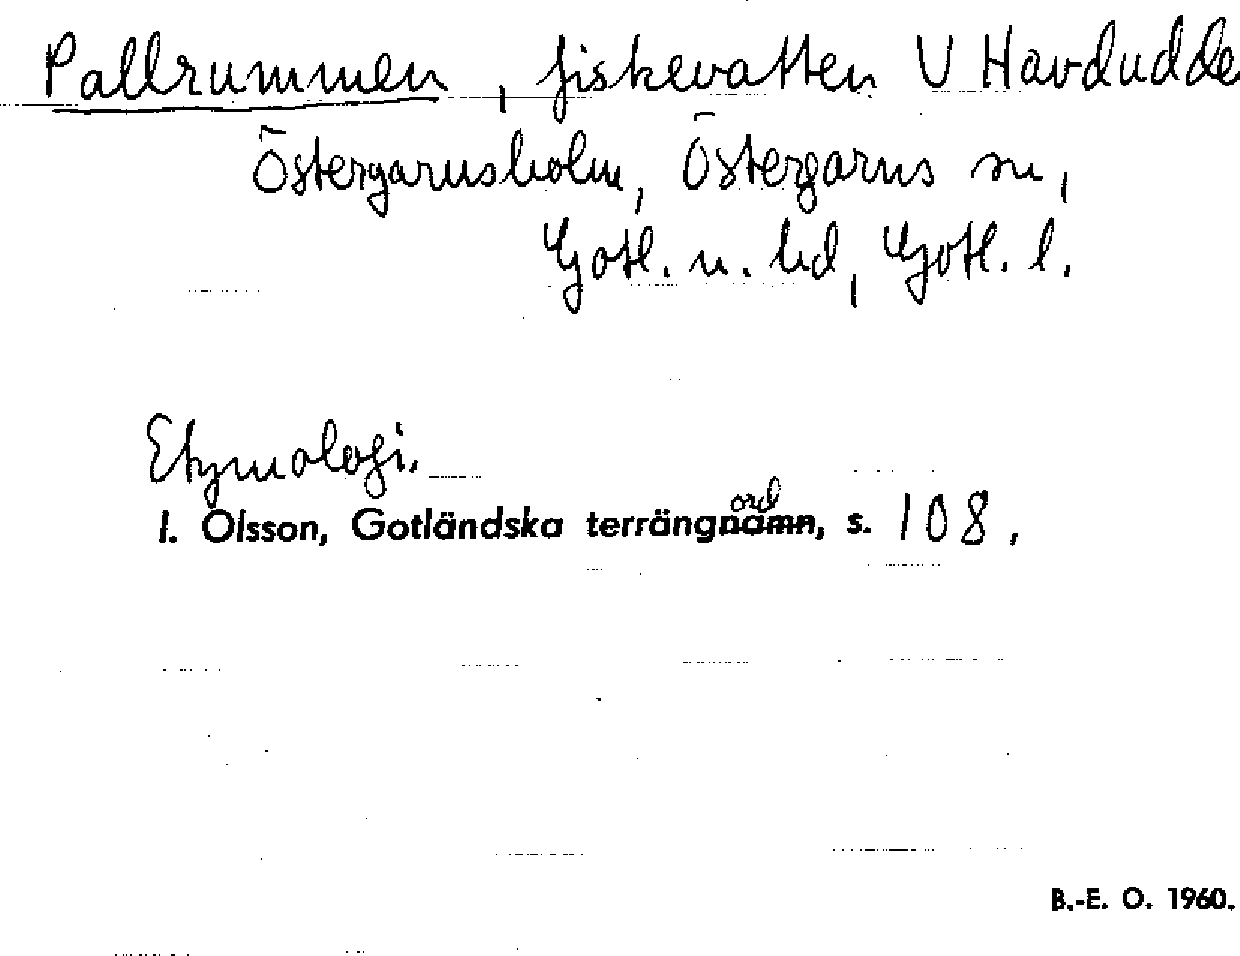 Pallrummen, fiskevatten V Havdudde
Östergarnsholm, Östergarns sn,
Gotl. n. hd, Gotl. l.
Etymologi.
ord
I. Olsson, Gotländska terrängnamn, s. 108.
B.-E. O. 1960.